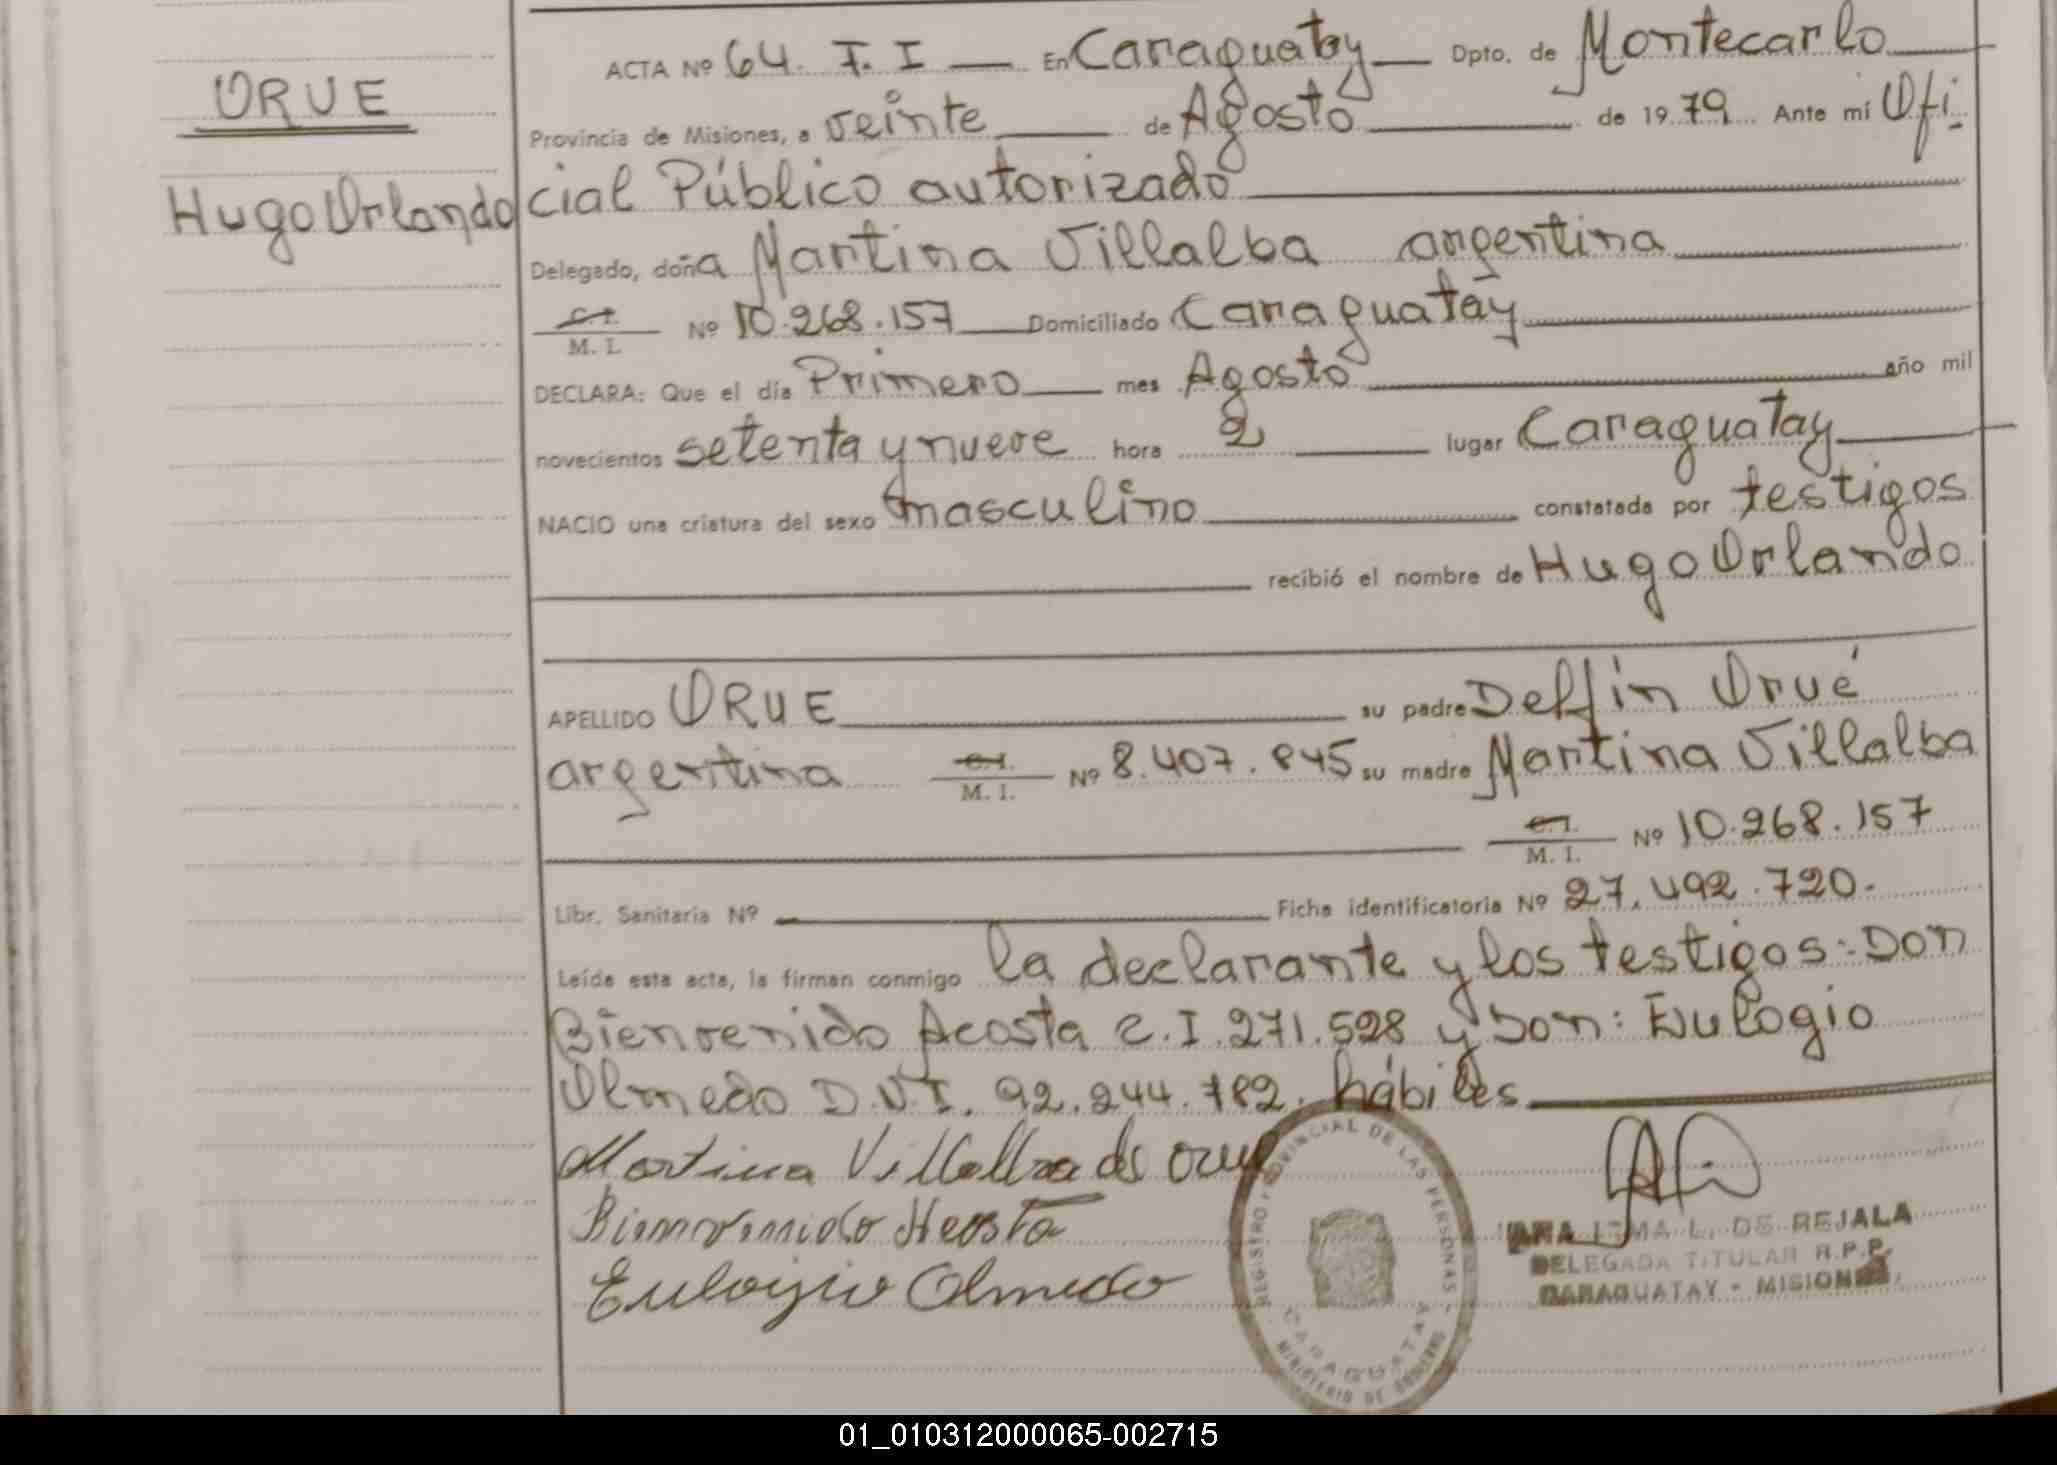 ORUE
Hugo Orlando
ACTA Nº 64. T. I En Caraguatay Dpto. de Montecarlo
Provincia de Misiones, a veinte de Agosto de 1979 Ante mi Ofi
cial Público autorizado
Delegado, doña Martina Villalba argentina
C.I. M. I. Nº 10.268.157 Domiciliado Caraguatay
DECLARA: Que el día Primero mes Agosto año mil
novecientos setenta y nueve hora 2 lugar Caraguatay
NACIO una criatura del sexo masculino constatada por testigos
recibió el nombre de Hugo Orlando
APELLIDO ORUE su padre Delfin Orué
argentina C.I. M. I. Nº 8.407.845 su madre Martina Villalba
C.I. M. I. Nº 10.268.157
Libr. Sanitaria Nº Ficha identificatoria Nº 27.492.720.
Leída esta acta, la firman conmigo la declarante y los testigos: Don
Bienvenido Acosta C.I. 271.528 y Don: Eulogio
Olmedo D.N.I. 92.244.782. hábiles
Martina Villalba de Orue
Bienvenido Acosta
Eulogio Olmedo
REGISTRO PROVINCIAL DE LAS PERSONAS
CARAGUATAY
MINISTERIO DE GOBIERNO
ANA IRMA L. DE REJALA
DELEGADA TITULAR R.P.P.
CARAGUATAY - MISIONES
01_010312000065-002715